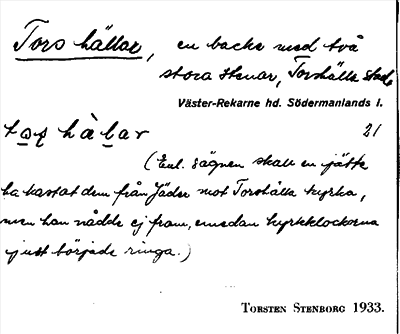 Tors hällar, en backe med två
stora stenar, Torshälla stad
Väster-Rekarne hd. Södermanlands l.
21
(Enl. sägnen skall en jätte
ha kastat dem från Jäder mot Torshälla kyrka,
men han nådde ej fram, emedan kyrkklockorna
just började ringa.)
TORSTEN STENBORG 1933.